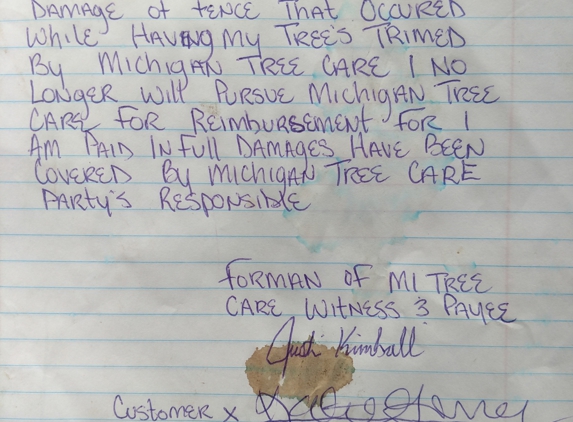 DAMAGE of FENCE THAT OCCURED
WHILE HAVING MY TREE'S TRIMED
BY MICHIGAN TREE CARE I NO
LONGER WILL PURSUE MICHIGAN TREE
CARE FOR REIMBURSEMENT FOR I
AM PAID IN FULL DAMAGES HAVE BEEN
COVERED BY MICHIGAN TREE CARE
PARTY'S RESPONSIBLE
FORMAN OF MI TREE
CARE WITNESS & PAYEE
Kimball
CUSTOMER X